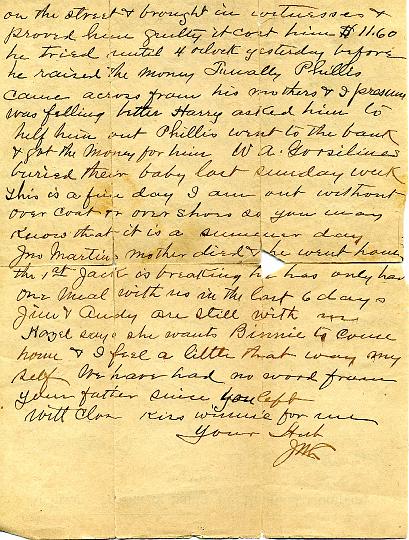 on the street & brought in witnesses &
proved him guilty it cost him $11.60
he tried until 4 oclock yesterday before
he raised the money Finally Phillis
came across from his mothers & I presume
was feeling better Harry asked him to
help him out Phillis went to the bank
& got the money for him W A. Gorsilines
buried their baby last sunday week
This is a fine day I am out without
over coat or over shoes so you may
know that it is a summer day
Jno Martins mother died & he went home
the 1st Jack is breaking he has only had
one meal with us in the last 6 days
Jim & Andy are still with me
Hazel says she wants Binnie to come
home & I feel a little that way my
self We have had no word from
your father since you left
Will Close Kiss winnie for me
Your Hub